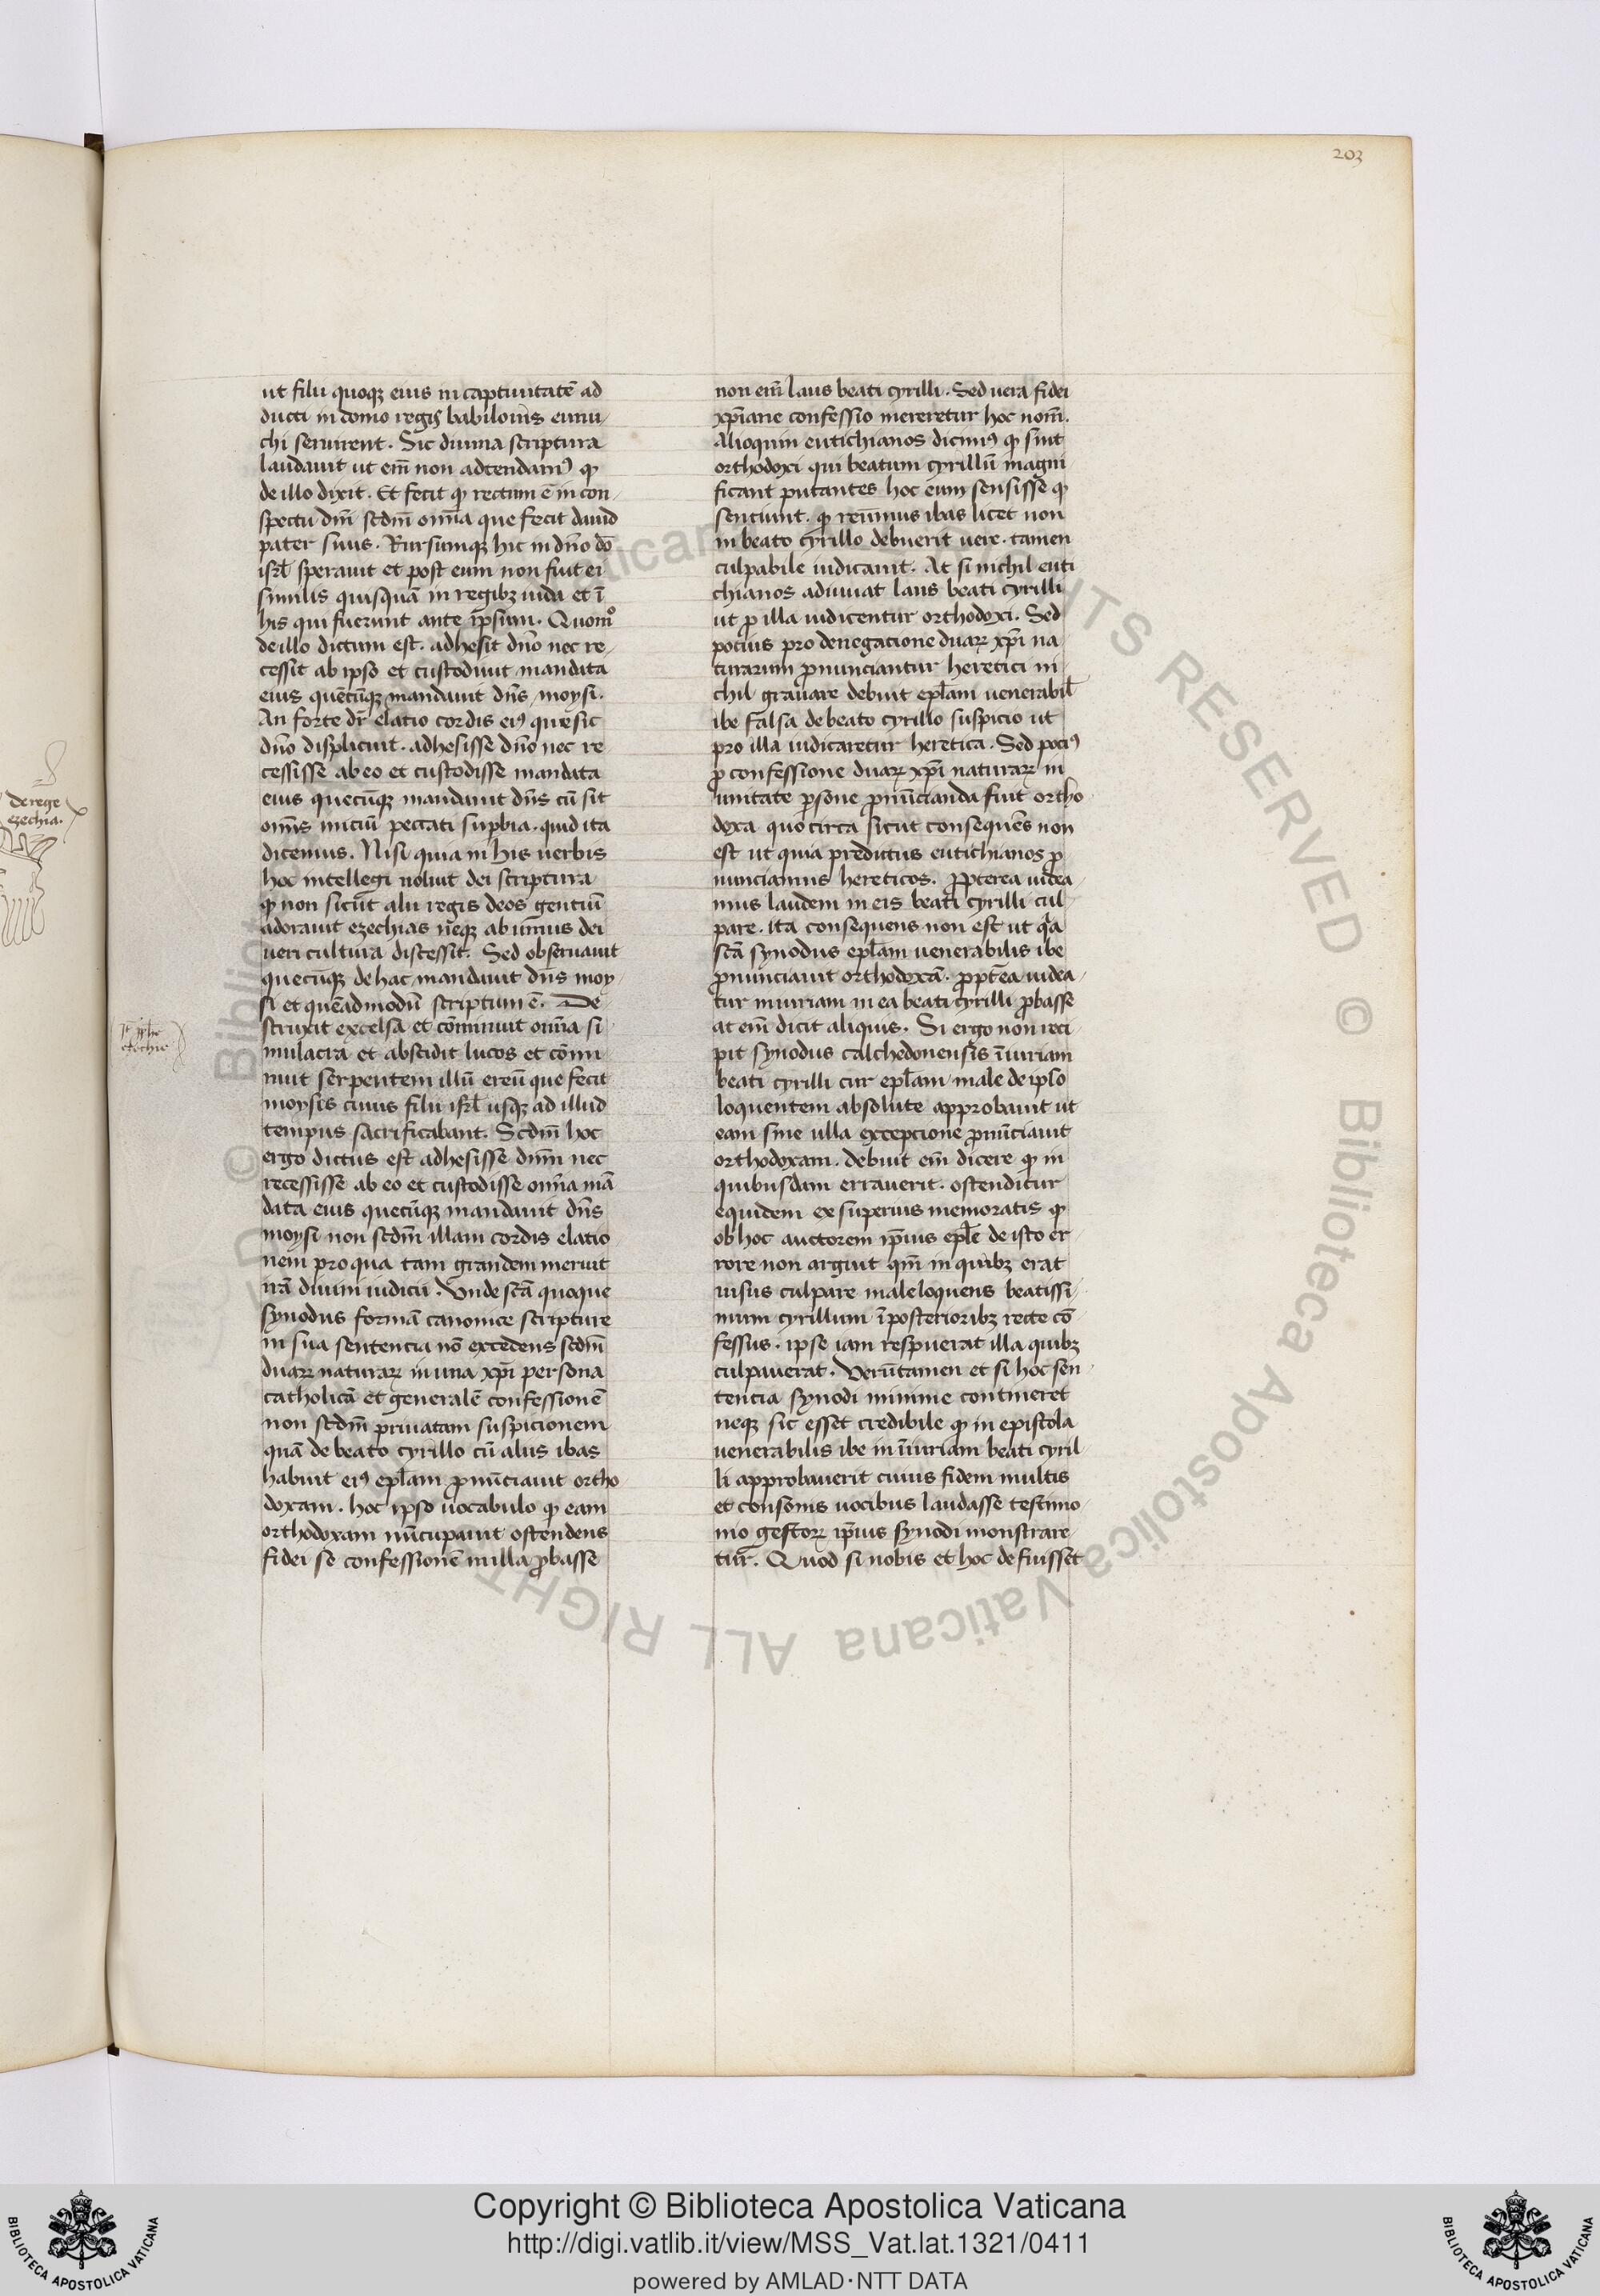 203
ut filii quoqȝ eius in captiuitatē ad
ducti in domo regis babilonis eunu-
chi seruirent. Sic diuina scriptura
laudauit ut em̄ non adtendam⁹ qꝫ
de illo dixit. Et fecit qꝫ rectum ē in con-
spectu dn̄i scdm̄ om̄ia que fecit dauid
pater suus. Rursumqȝ hic in dn̄o dō
isrl̄ sperauit et post eum non fuit ei
similis quisquā in regibȝ iuda et ī
his qui fuerunt ante ip̄sum. Quomᵒ
de illo dictum est. adhesit dn̄o nec re-
cessit ab ipso et custodiuit mandata
eius quēcūqȝ mandauit dn̄s moysi.
An forte dr̄ elatio cordis ei⁹ que sic
dn̄o displicuit. adhesisse dn̄o nec re
cessisse ab eo et custodisse mandata
eius quecūqȝ mandauit dn̄s cū sit
om̄s iniciū peccati suꝑbia. quid ita
dicemus. Nisi quia in his uerbis
hoc intellegi uoluit dei scriptura
qꝫ non sicūt alii regis deos gentiū
adorauit ezechias neqȝ ab unius dei
ueri cultura discessit. Sed obseruauit
quecūqȝ de hac mandauit dn̄s moy-
si et quēadmodū scriptum ē. De
struxit excelsa et cōminuit om̄ia si
mulacra et abscidit lucos et cōmi
nuit serpentem illū ereū que fecit
moyses cuius filii isrl̄ usqȝ ad illud
tempus sacrificabant. Scdm̄ hoc
ergo dictus est adhesisse dn̄m nec
recessisse ab eo et custodisse om̄ia mā
data eius quecūqȝ mandauit dn̄s
moysi non scdm̄ illam cordis elatio
nem pro qua tam grandem meruit
irā diuini iudicii. Unde scā quoque
synodus formā canonice scripture
in sua sentencia nō excedens scdm̄
duaꝝ naturaꝝ in una xp̄i persona
catholicā et generalē confessionē
non scdm̄ priuatam suspicionem
quā de beato cyrillo cū aliis ibas
habuit ei⁹ epl̄am ꝓnūciauit ortho
doxam. hoc ipso uocabulo qꝫ eam
orthodoxam nūcupauit ostendens
fidei se confessionē in illa ꝓbasse
non em̄ laus beati cyrilli. Sed uera fidei
xp̄iane confessio mereretur hoc nom̄.
Alioquin eutichianos dicim⁹ qꝫ sint
orthodoxi qui beatum cyrillū magni
ficant putantes hoc eum sensisse qꝫ
sentiunt. qꝫ reuīmus ibas licet non
in beato cyrillo debuerit uere. tamen
culpabile iudicauit. At si nichil euti
chianos adiuuat laus beati cyrilli
ut ꝓ illa iudicentur orthodoxi. Sed
pocius pro denegacione duaꝝ xp̄i na
turarum ꝓnunciantur heretici ni
chil grauare debuit epl̄am uenerabil̄
ibe falsa de beato cyrillo suspicio ut
pro illa iudicaretur heretica. Sed poci⁹
ꝓ confessione duaꝝ xp̄i naturaꝝ in
unitate ꝑsone ꝓnūcianda fuit ortho
doxa quo circa sicut consequēs non
est ut quia predictus eutichianos ꝓ
nunciamus hereticos. ꝓpterea uidea-
mus laudem in eis beati cyrilli cul-
pare. ita consequens non est ut qͣa
scā synodus epl̄am uenerabilis ibe
ꝓnunciauit orthodoxā. ꝓpt̄ea uidea-
tur iniuriam in ea beati cyrilli ꝓbasse
at em̄ dicit aliquis. Si ergo non reci-
pit synodus calchedonensis īiuriam
beati cyrilli cur epl̄am male de ipso
loquentem absolute approbauit ut
eam sine ulla excepcione ꝓnūciauit
orthodoxam. debuit em̄ dicere qꝫ in
quibusdam errauerit. ostenditur
equidem ex superius memoratis qꝫ
ob hoc auctorem ip̄ius epl̄e de isto er-
rore non arguit qm̄ in quibȝ erat
uisus culpare male loquens beatissi-
mum cyrillum ī posterioribȝ recte cō
fessus. ipse iam respuerat illa quibȝ
culpauerat. Verūtamen et si hoc sen-
tencia synodi minime contineret
neqȝ sic esset credibile qꝫ in epistola
uenerabilis ibe in īiuriam beati cyril-
li approbauerit cuius fidem multis
et consonis uocibus laudasse testimo-
nio gestoꝝ ip̄ius synodi monstrare
tur̄. Quod si nobis et hoc defuisset
de rege
ezechia.
Copyright © Biblioteca Apostolica Vaticana
http://digi.vatlib.it/view/MSS_Vat.lat.1321/0411
powered by AMLAD·NTT DATA
BIBLIOTECA APOSTOLICA VATICANA
BIBLIOTECA APOSTOLICA VATICANA